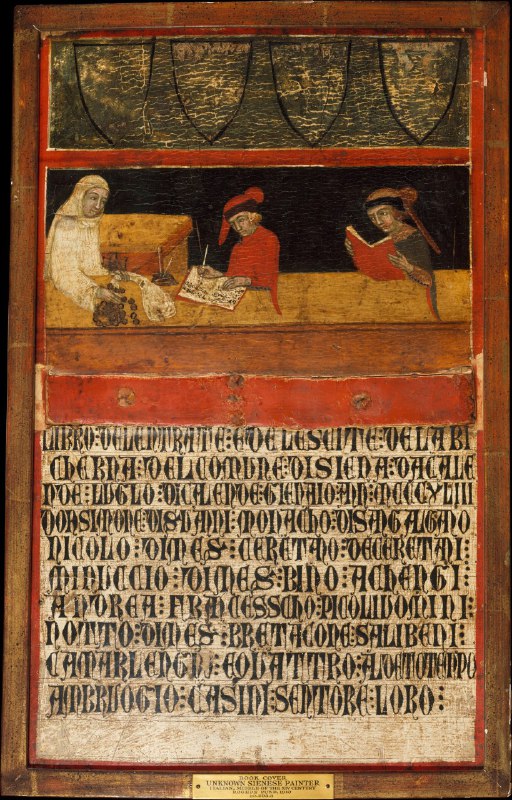 LIBRO : DELENTRATE : E DELESCITE : DELABI
CHERNA : DELCOMUNE : DISIENA : DACALE
NDE : LUGLO : DICALENDE : GIENAIO : AN̄ : MCCCXLIII
DONSIMONE : DISER
MONACHO : DISANGALGANO
NICOLO : DIMES : CERETANO : DECERETANI :
MINUCCIO : DIMES : BINO : ACHENGI :
ANDREA : FRANCESSCHO : PICOLUOMINI :
NOTTO : DIMES : BRETACONE : SALIBENI :
CAMARLENGO : EQUATTRO : ALDETOTENPO
AMBRUOGIO : CASINI : SENTORE : LORO :
BOOK COVER
UNKNOWN SIENESE PAINTER
ITALIAN, MIDDLE OF THE XIV CENTURY
ROGERS FUND, 1910